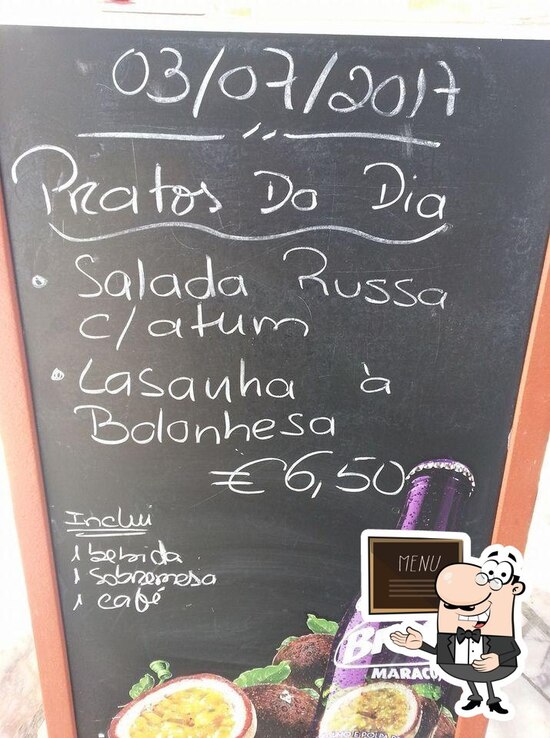 03/07/2017
Pratos Do Dia
• Salada Russa
c/atum
• Lasanha à
Bolonhesa
€6,50
Inclui
1 bebida
1 sobremesa
1 café
MENU
MARACU